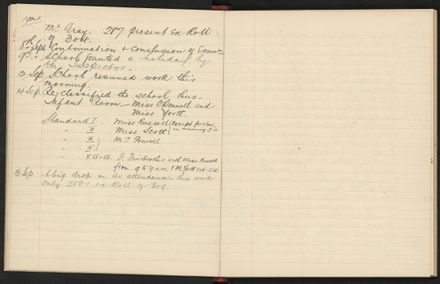 1901
Mr Gray. 287 present Ex Roll
of 308.
Continuation & Conclusion of Exam
School granted a holiday by
the Inspector.
2 Sep School resumed work this
morning.
4 Sep Re-classified the school, thus:-
Infant Room - Miss O'Donnell and
Miss
Standard I Miss Russell (except
" II Miss Scott in morning
" III
" IV } Mr Powell
V. F. and Miss Russell
from 9 to
6 Sep. A big drop in the attendance this week
only 250.1 ex Roll of 309.